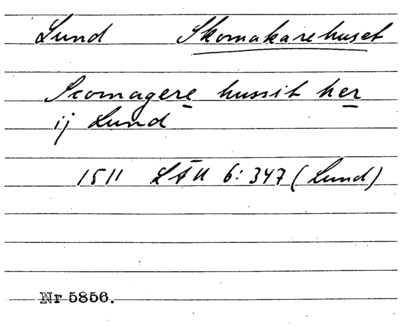 Lund Skomakarehuset
Scomagere hussit her
ij Lund
1511 LÄU 6:347 (Lund)
Nr 5856.